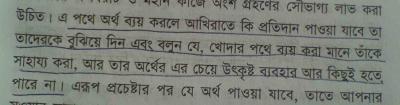 উচিত। এ পথে অর্থ ব্যয় করলে আখিরাতে কি প্রতিদান পাওয়া যাবে তা
তাদেরকে বুঝিয়ে দিন এবং বলুন যে, খোদার পথে ব্যয় করা মানে তাঁকে
সাহায্য করা, আর তার অর্থের এর চেয়ে উৎকৃষ্ট ব্যবহার আর কিছুই হতে
পারে না। এরূপ প্রচেষ্টার পর যে অর্থ পাওয়া যাবে, তাতে আপনার